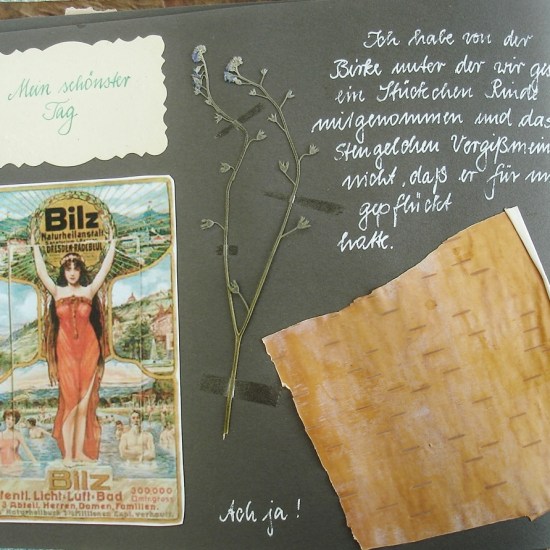 Mein schönster
Tag
Ich habe von der
Birke unter der wir ges
ein Stückchen Rinde
mitgenommen und das
Stengelchen Vergißmein
nicht, daß er für mi
gepflückt
hatte.
Bilz
Naturheilanstalt
DRESDEN-RADEBEUL
Bilz
entl. Licht-Luft-Bad
3 Abteil. Herren, Damen, Familien.
300,000
Ach ja!